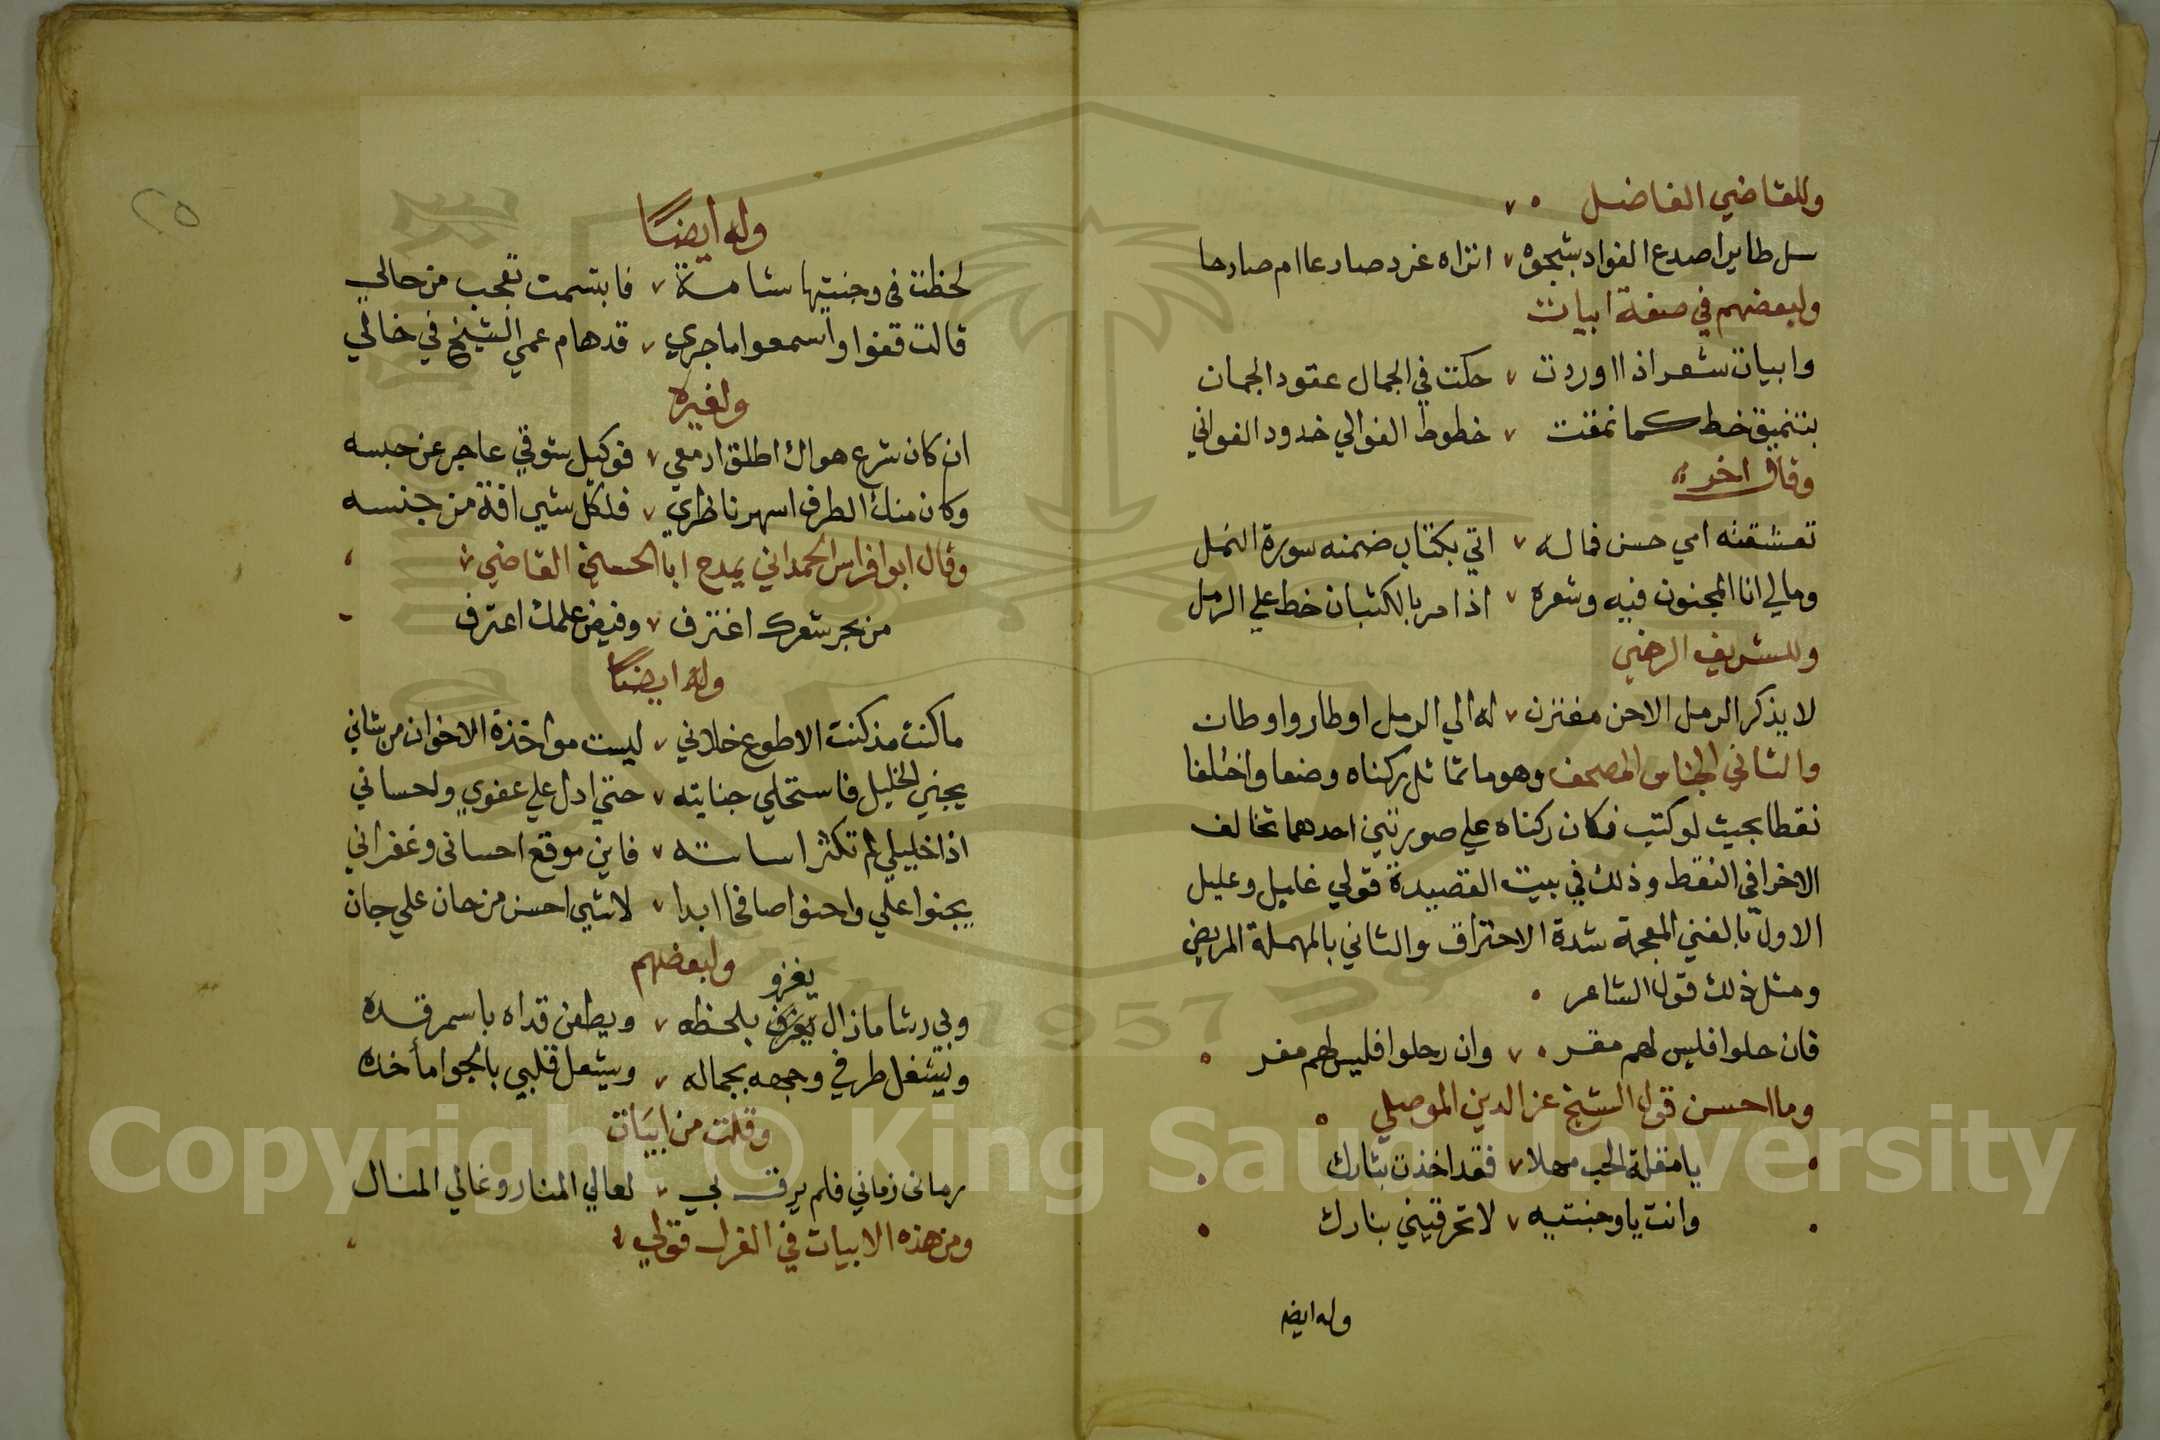 وللقاضي الفاضل
سل طايرا صدع الفواد بشجوه اتراه غرد صادعا ام صادحا
ولبعضهم في صفة ابيات
وابيات شعر اذا اوردت حكت في الجمال عقود الجمان
بتنميق خط كما نمقت خطوط الغوالي خدود الغواني
وقال اخر
تعشقته امي حسن فماله اتي بكتاب ضمنه سورة النمل
ومالي انا المجنون فيه وشعره اذا مر بالكثبان خط علي الرمل
وللشريف الرضي
لا يذكر الرمل الا حن مغترن له الي الرمل اوطار واوطان
والثاني الجناس المصحف وهو ما تماثل ركناه وضعا واختلفا
نقطا بحيث لو كتب فكان ركناه علي صورتين احدهما تخالف
الاخرا في النقط وذلك في بيت القصيدة قولي غليل وعليل
الاول بالغين المعجمة شدة الاحتراق والثاني بالمهملة المريض
ومثل ذلك قول الشاعر
فان حلوا فليس لهم مقر وان رحلوا فليس لهم مفر
وما احسن قول الشيخ عز الدين الموصلي
يا مقلة الحب مهلا فقد اخذت بثارك
وانت يا وجنتيه لا تحرقيني بنارك
وله ايضا
٢٥
وله ايضًا
لحظت في وجنتيها شامة فابتسمت تعجب من حالي
قالت قفوا واسمعوا ما جري قد هام عمي الشيخ في خالي
ولغيره
ان كان شرع هواك اطلق ادمعي فوكيل شوقي عاجز عن حبسه
وكان منك الطرف اسهر ناظري فلكل شيء افة من جنسه
وقال ابو افراس الحمداني يمدح ابا الحسين القاضي
من بحر شعرك اغترف وفيض علمك اعترف
وله ايضًا
ما كنت مذ كنت الا طوع خلاني ليست مواخذة الاخوان من شاني
يجني الخليل فاستحلي جنايته حتي ادل علي عفوي واحساني
اذا خليلي لم تكثر اساته فاين موقع احساني وغفراني
يجنوا علي واحنوا صافحا ابدا لا شيء احسن من حان علي جان
ولبعضهم
يغزو
وبي رشا ما زال بلحظه ويطعن قداه باسمر قده
ويشغل طرفي وجهه بجماله ويشعل قلبي بالجوا ماخده
وقلت من ابيات
رماني زماني فلم يرق بي لعالي المنار وغالي المنال
ومن هذه الابيات في الغزل قولي
Copyright © King Saud University
1957